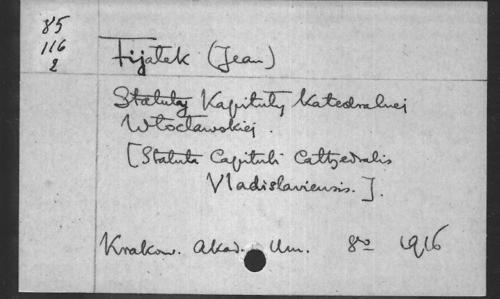 85
116
2
Fijatek (Jean)
Statuty Kapituły Katedralnej
Włocławskiej.
[Statuta Capituli Cathedralis
Vladislaviensis.].
Krakow. Akad. Um. 8vo 1916